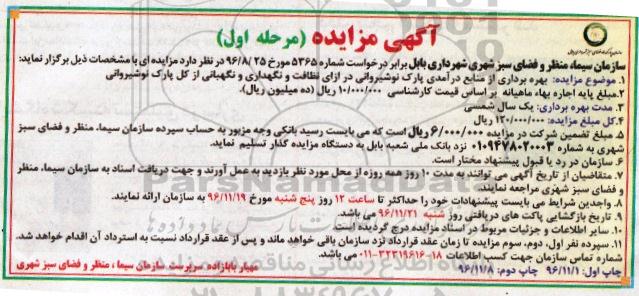 آگهی مزایده (مرحله اول)
سازمان سیما، منظر و فضای سبز شهری شهرداری بابل برابر درخواست شماره ۵۳۶۵ مورخ ۹۶/۸/۲۵ در نظر دارد مزایده ای با مشخصات ذیل برگزار نماید:
۱. موضوع مزایده: بهره برداری از منابع درآمدی پارک نوشیروانی در ازای نظافت و نگهداری و نگهبانی از کل پارک نوشیروانی
۲.مبلغ پایه اجاره بهاء ماهیانه بر اساس قیمت کارشناسی ۱۰/۰۰۰/۰۰۰ ریال (ده میلیون ریال).
۳. مدت بهره برداری: یک سال شمسی
۴.کل مبلغ مزایده: ۱۲۰/۰۰۰/۰۰۰ ریال
۵. مبلغ تضمین شرکت در مزایده ۶/۰۰۰/۰۰۰ ریال است که می بایست رسید بانکی وجه مزبور به حساب سپرده سازمان سیما، منظر و فضای سبز
شهری به شماره ۰۱۰۹۴۷۸۰۲۰۰۰۳ نزد بانک ملی شعبه بابل به دستگاه مزایده گذار تسلیم نماید.
۶. سازمان در رد یا قبول پیشنهاد مختار است.
۷. متقاضیان از تاریخ آگهی می توانند به مدت ۱۰ روز همه روزه از محل مورد نظر بازدید به عمل آورند و جهت دریافت اسناد به سازمان سیما، منظر
و فضای سبز شهری مراجعه نمایند.
۸. واجدین شرایط می بایست پیشنهادات خود را حداکثر تا ساعت ۱۲ روز پنج شنبه مورخ ۹۶/۱۱/۱۹ به سازمان ارائه نمایند.
۹. تاریخ بازگشایی پاکت های دریافتی روز شنبه ۹۶/۱۱/۲۱ می باشد.
۱۰. سایر اطلاعات و جزئیات مربوط در اسناد مزایده درج گردیده است
۱۱. سپرده نفر اول، دوم، سوم مزایده تا زمان عقد قرارداد نزد سازمان باقی خواهد ماند و پس از عقد قرارداد نسبت به استرداد آن اقدام خواهد شد.
شماره تماس سازمان جهت کسب اطلاعات ۱۸-۳۲۳۱۹۶۱۶-۰۱۱ می باشد.
چاپ اول: ۹۶/۱۱/۱ چاپ دوم: ۹۶/۱۱/۸
مهیار بابازاده سرپرست سازمان سیما، منظر و فضای سبز شهری